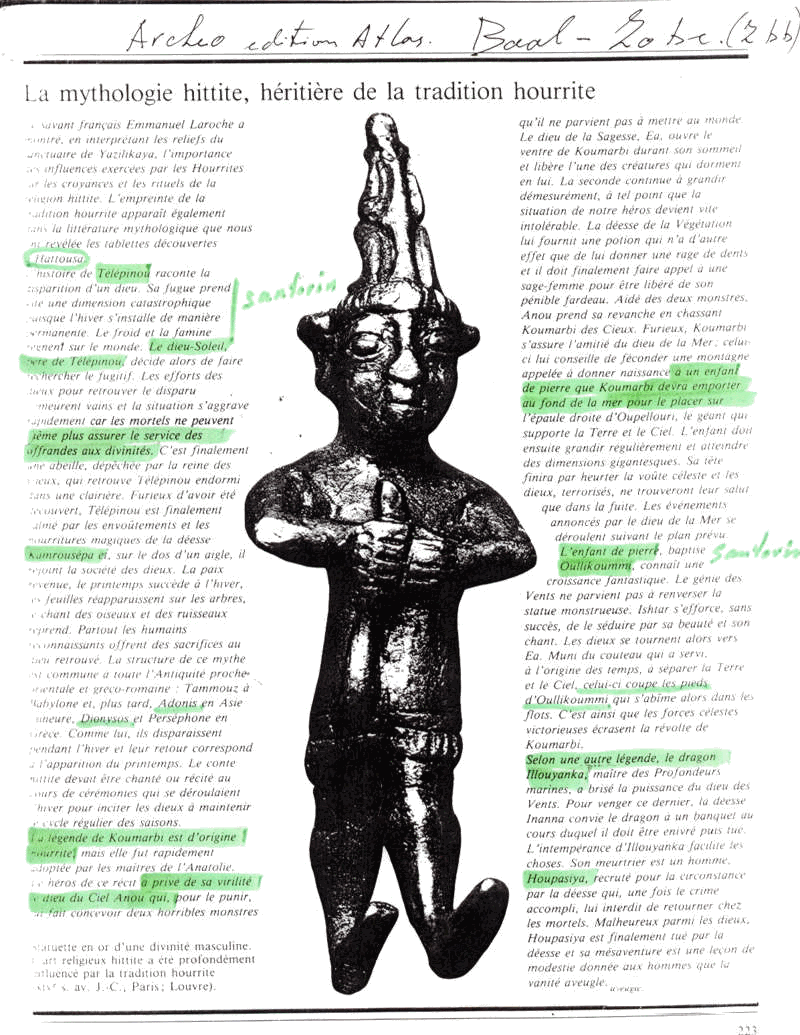 Archeo edition Atlas. Baal - Zobe. (2 bb)
La mythologie hittite, héritière de la tradition hourrite
savant français Emmanuel Laroche a
montré, en interprétant les reliefs du
sanctuaire de Yazilikaya, l'importance
des influences exercées par les Hourrites
sur les croyances et les rituels de la
religion hittite. L'empreinte de la
tradition hourrite apparaît également
dans la littérature mythologique que nous
ont revélée les tablettes découvertes
Hattousa.
histoire de Télépinou raconte la
disparition d'un dieu. Sa fugue prend
vite une dimension catastrophique
puisque l'hiver s'installe de manière
permanente. Le froid et la famine
règnent sur le monde. Le dieu-Soleil,
père de Télépinou, décide alors de faire
rechercher le fugitif. Les efforts des
dieux pour retrouver le disparu
demeurent vains et la situation s'aggrave
rapidement car les mortels ne peuvent
même plus assurer le service des
offrandes aux divinités. C'est finalement
une abeille, dépêchée par la reine des
cieux, qui retrouve Télépinou endormi
dans une clairière. Furieux d'avoir été
découvert, Télépinou est finalement
calmé par les envoûtements et les
nourritures magiques de la déesse
Kamrousépa et, sur le dos d'un aigle, il
rejoint la société des dieux. La paix
revenue, le printemps succède à l'hiver,
les feuilles réapparaissent sur les arbres,
le chant des oiseaux et des ruisseaux
reprend. Partout les humains
reconnaissants offrent des sacrifices au
dieu retrouvé. La structure de ce mythe
est commune à toute l'Antiquité proche-
orientale et gréco-romaine : Tammouz à
Babylone et, plus tard, Adonis en Asie
Mineure, Dionysos et Perséphone en
Grèce. Comme lui, ils disparaissent
pendant l'hiver et leur retour correspond
à l'apparition du printemps. Le conte
hittite devait être chanté ou récité au
cours de cérémonies qui se déroulaient
l'hiver pour inciter les dieux à maintenir
le cycle régulier des saisons.
La légende de Koumarbi est d'origine
hourrite, mais elle fut rapidement
adoptée par les maîtres de l'Anatolie.
Le héros de ce récit a privé de sa virilité
le dieu du Ciel Anou qui, pour le punir,
lui fait concevoir deux horribles monstres
santorin
statuette en or d'une divinité masculine.
L'art religieux hittite a été profondément
influencé par la tradition hourrite
s. av. J.-C., Paris; Louvre).
qu'il ne parvient pas à mettre au monde.
Le dieu de la Sagesse, Ea, ouvre le
ventre de Koumarbi durant son sommeil
et libère l'une des créatures qui dorment
en lui. La seconde continue à grandir
démesurément, à tel point que la
situation de notre héros devient vite
intolérable. La déesse de la Végétation
lui fournit une potion qui n'a d'autre
effet que de lui donner une rage de dents
et il doit finalement faire appel à une
sage-femme pour être libéré de son
pénible fardeau. Aidé des deux monstres,
Anou prend sa revanche en chassant
Koumarbi des Cieux. Furieux, Koumarbi
s'assure l'amitié du dieu de la Mer; celui-
ci lui conseille de féconder une montagne
appelée à donner naissance à un enfant
de pierre que Koumarbi devra emporter
au fond de la mer pour le placer sur
l'épaule droite d'Oupellouri, le géant qui
supporte la Terre et le Ciel. L'enfant doit
ensuite grandir régulièrement et atteindre
des dimensions gigantesques. Sa tête
finira par heurter la voûte céleste et les
dieux, terrorisés, ne trouveront leur salut
que dans la fuite. Les événements
annoncés par le dieu de la Mer se
déroulent suivant le plan prévu.
L'enfant de pierre, baptisé
Oullikoummi, connaît une
croissance fantastique. Le génie des
Vents ne parvient pas à renverser la
statue monstrueuse. Ishtar s'efforce, sans
succès, de le séduire par sa beauté et son
chant. Les dieux se tournent alors vers
Ea. Muni du couteau qui a servi,
à l'origine des temps, à séparer la Terre
et le Ciel, celui-ci coupe les pieds
d'Oullikoummi qui s'abîme alors dans les
flots. C'est ainsi que les forces célestes
victorieuses écrasent la révolte de
Koumarbi.
Selon une autre légende, le dragon
Illouyanka, maître des Profondeurs
marines, a brisé la puissance du dieu des
Vents. Pour venger ce dernier, la déesse
Inanna convie le dragon à un banquet au
cours duquel il doit être enivré puis tué.
L'intempérance d'Illouyanka facilite les
choses. Son meurtrier est un homme,
Houpasiya, recruté pour la circonstance
par la déesse qui, une fois le crime
accompli, lui interdit de retourner chez
les mortels. Malheureux parmi les dieux,
Houpasiya est finalement tué par la
déesse et sa mésaventure est une leçon de
modestie donnée aux hommes que la
vanité aveugle.
aveugle.
santorin
223